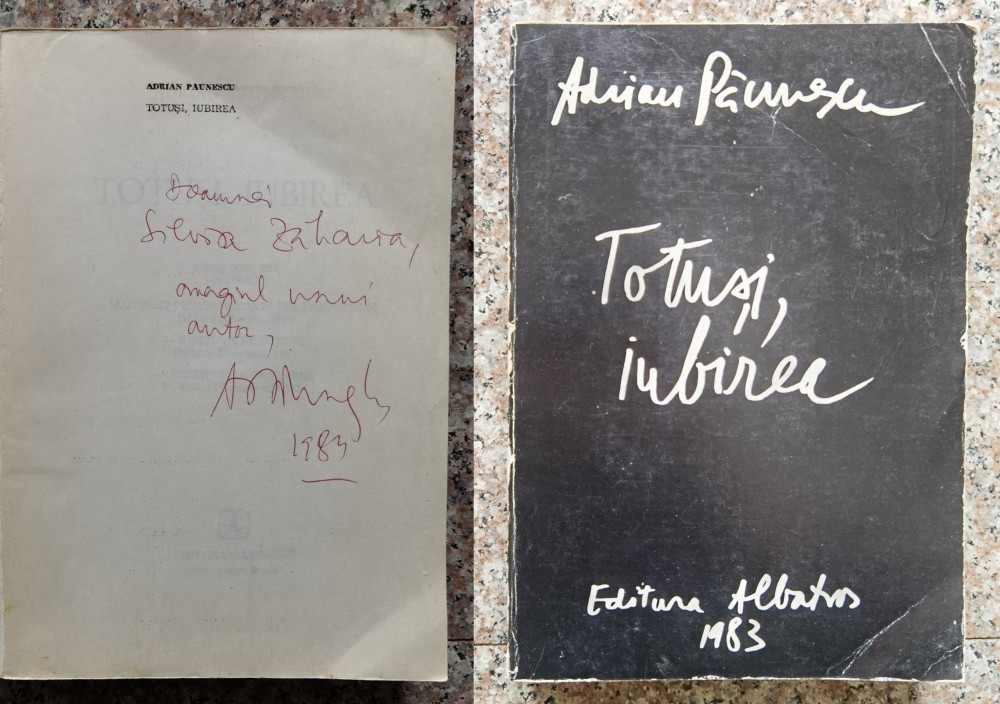 ADRIAN PĂUNESCU
TOTUȘI, IUBIREA
TOTUȘI, IUBIREA
Doamnei
Silvia Zaharia,
omagiul unui
autor,
1983
Adrian Păunescu
Totuși,
iubirea
Editura Albatros
1983